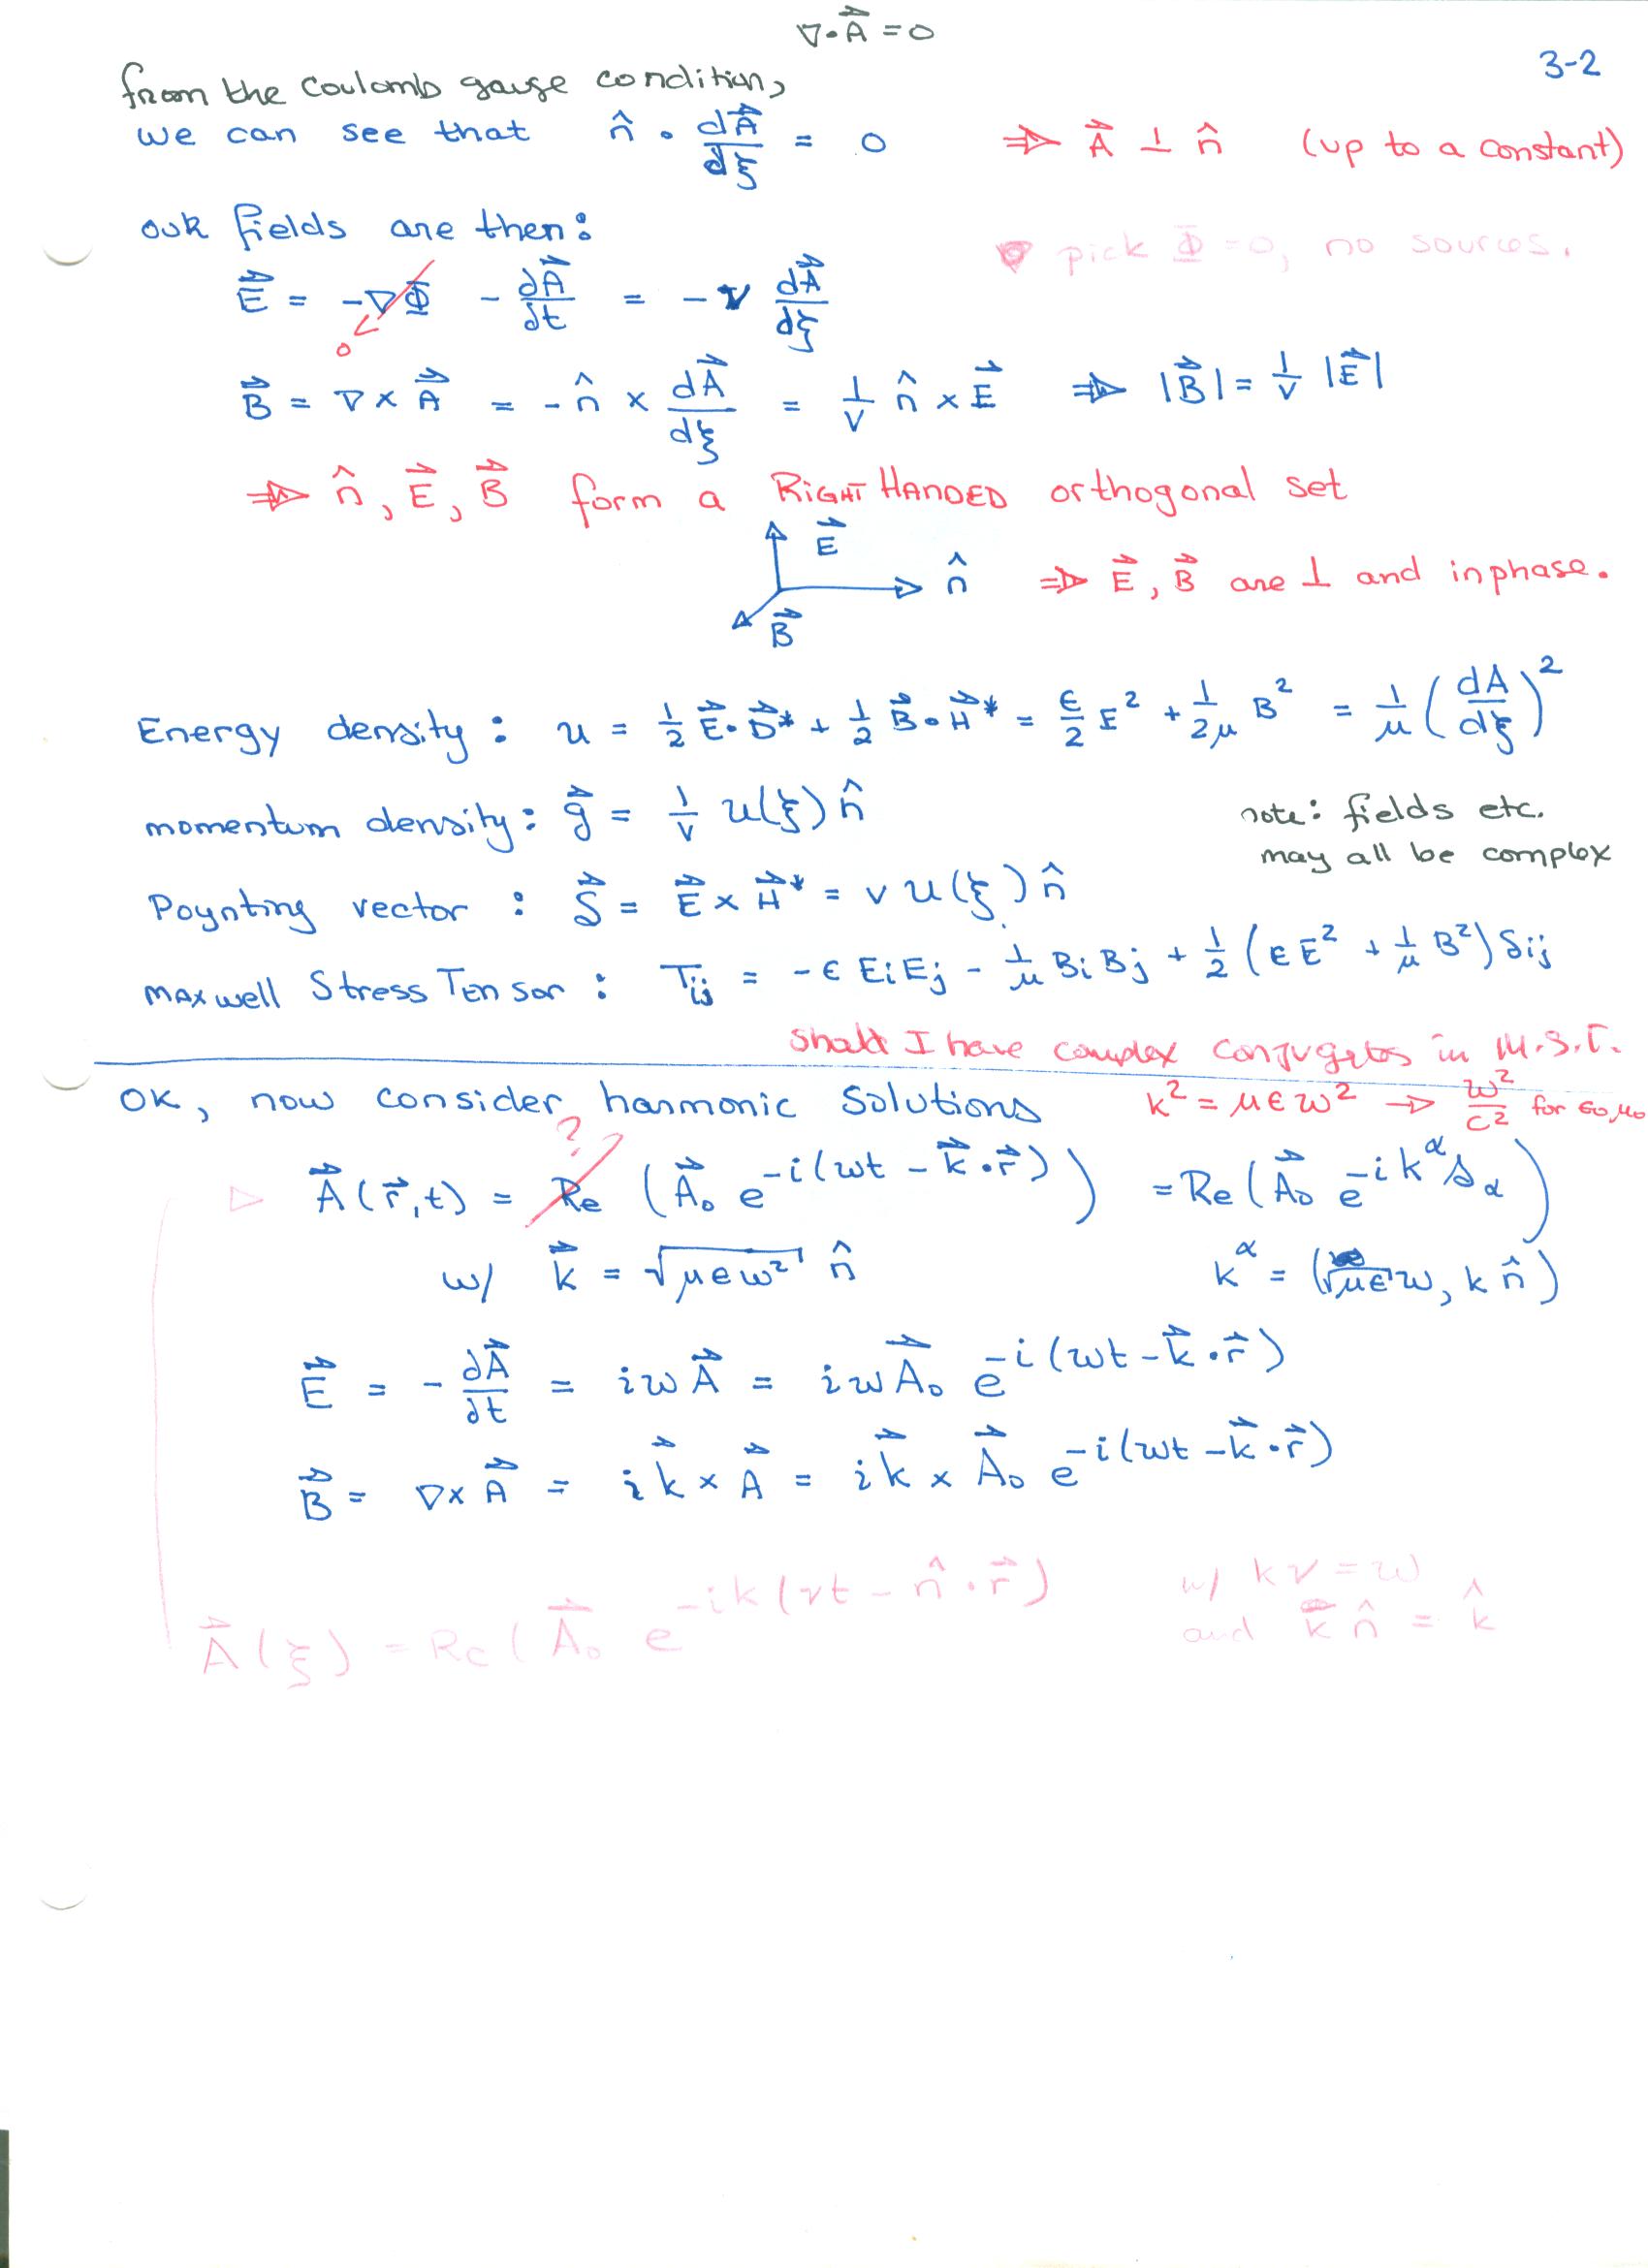 ∇·A⃗ = 0
3-2
from the Coulomb gauge condition,
we can see that n̂ · dA⃗/dξ = 0 ⇒ A⃗ ⊥ n̂ (up to a constant)
our fields are then:
pick Φ = 0, no sources.
E⃗ = -∇Φ - ∂A⃗/∂t = -v dA⃗/dξ
0
B⃗ = ∇ × A⃗ = -n̂ × dA⃗/dξ = 1/v n̂ × E⃗ ⇒ |B⃗| = 1/v |E⃗|
⇒ n̂, E⃗, B⃗ form a RIGHT HANDED orthogonal set
E⃗
n̂ ⇒ E⃗, B⃗ are ⊥ and in phase.
B⃗
Energy density: u = 1/2 E⃗·D⃗* + 1/2 B⃗·H⃗* = ϵ/2 E² + 1/2μ B² = 1/μ (dA/dξ)²
momentum density: g⃗ = 1/v u(ξ) n̂
note: fields etc.
may all be complex
Poynting vector: S⃗ = E⃗ × H⃗* = v u(ξ) n̂
Maxwell Stress Tensor: Tij = -ϵ EiEj - 1/μ BiBj + 1/2 (ϵE² + 1/μ B²) δij
Shall I have complex conjugates in M.S.T.
OK, now consider harmonic solutions k² = μϵω² → ω²/c² for ϵ₀,μ₀
?
A⃗(r⃗,t) = Re (A⃗₀ e^-i(ωt - k⃗·r⃗)) = Re(A⃗₀ e^-ik^α s_α)
w/ k⃗ = √μϵω² n̂ k^α = (√μϵ ω, k n̂)
E⃗ = -∂A⃗/∂t = iωA⃗ = iωA⃗₀ e^-i(ωt - k⃗·r⃗)
B⃗ = ∇×A⃗ = ik⃗ × A⃗ = ik⃗ × A⃗₀ e^-i(ωt - k⃗·r⃗)
A⃗(ξ) = Re(A⃗₀ e^-ik(vt - n̂·r⃗) w/ kv = ω
and k⃗ n̂ = k̂